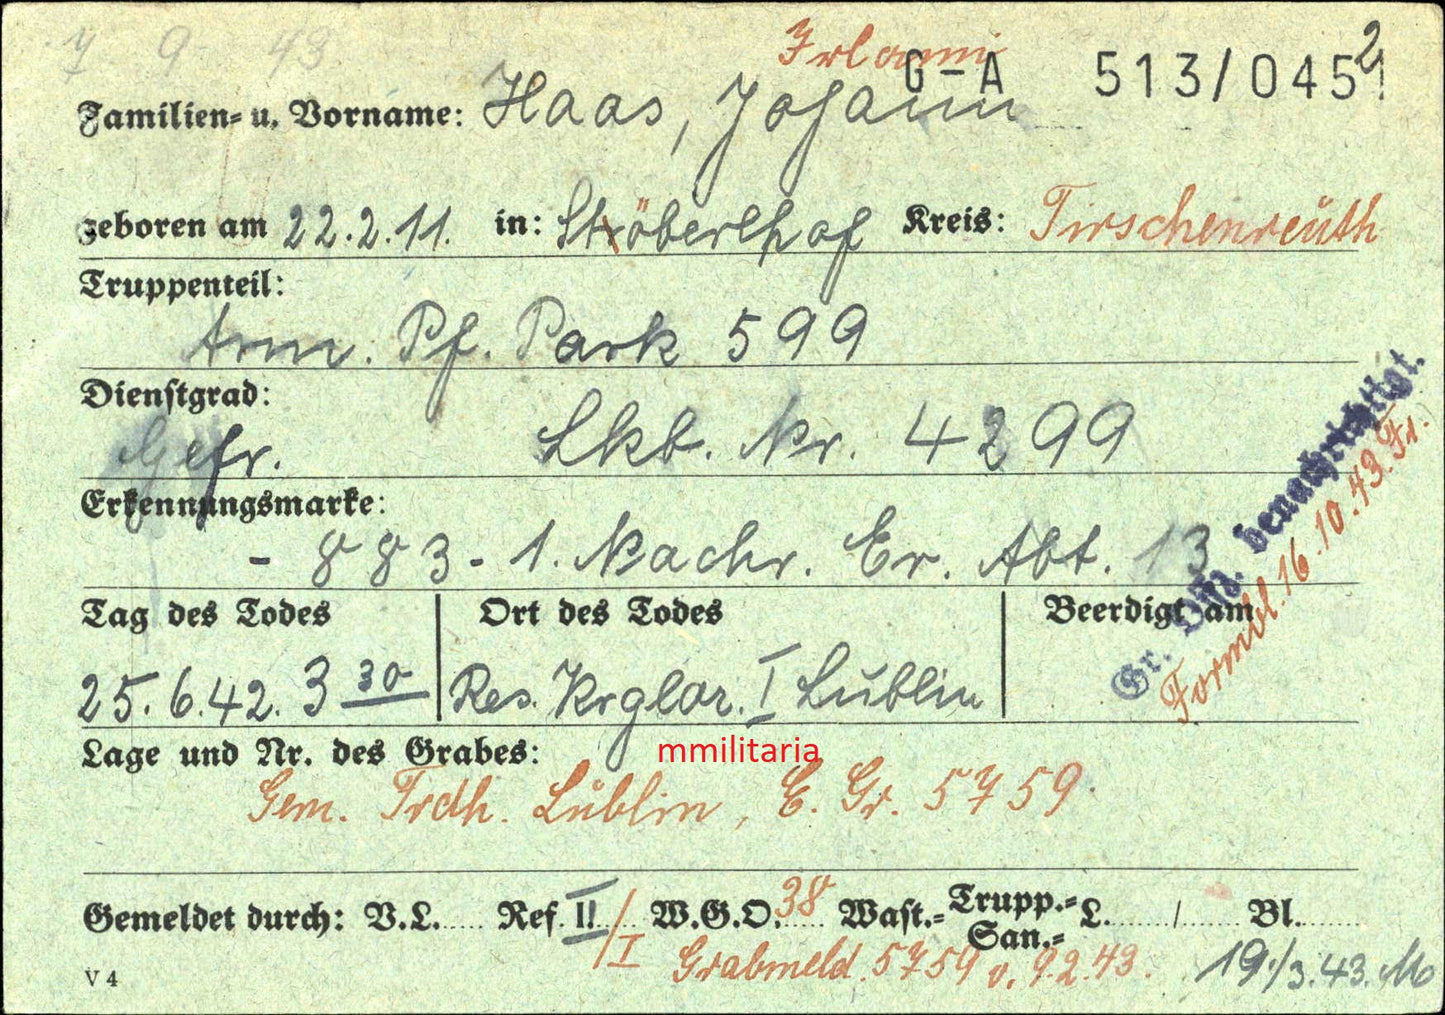 7 9 43
G-A 513/0452
Familien- u. Vorname: Haas, Johann
geboren am 22.2.11. in: Stöberlhof Kreis: Tirschenreuth
Truppenteil:
Arm. Pf. Park 599
Dienstgrad:
Gefr. Lkb. Nr. 4299
Erkennungsmarke:
- 883 - 1. Nachr. Er. Abt. 13
Tag des Todes Ort des Todes Beerdigt am
25.6.42. 3 30 Res. Krglaz. I Lublin
Gr. Offz. benachrichtigt.
Formbl. 16.10.43. Fr.
Lage und Nr. des Grabes:
mmilitaria
Gem. Frdh. Lublin, E. Gr. 5759.
Gemeldet durch: V.L. Ref. II / I W.G.O. 38 Wast.- Trupp.- San.- L. / Bl.
Grabmeld. 5759 v. 9.2.43. 19./3.43. Mo
V 4